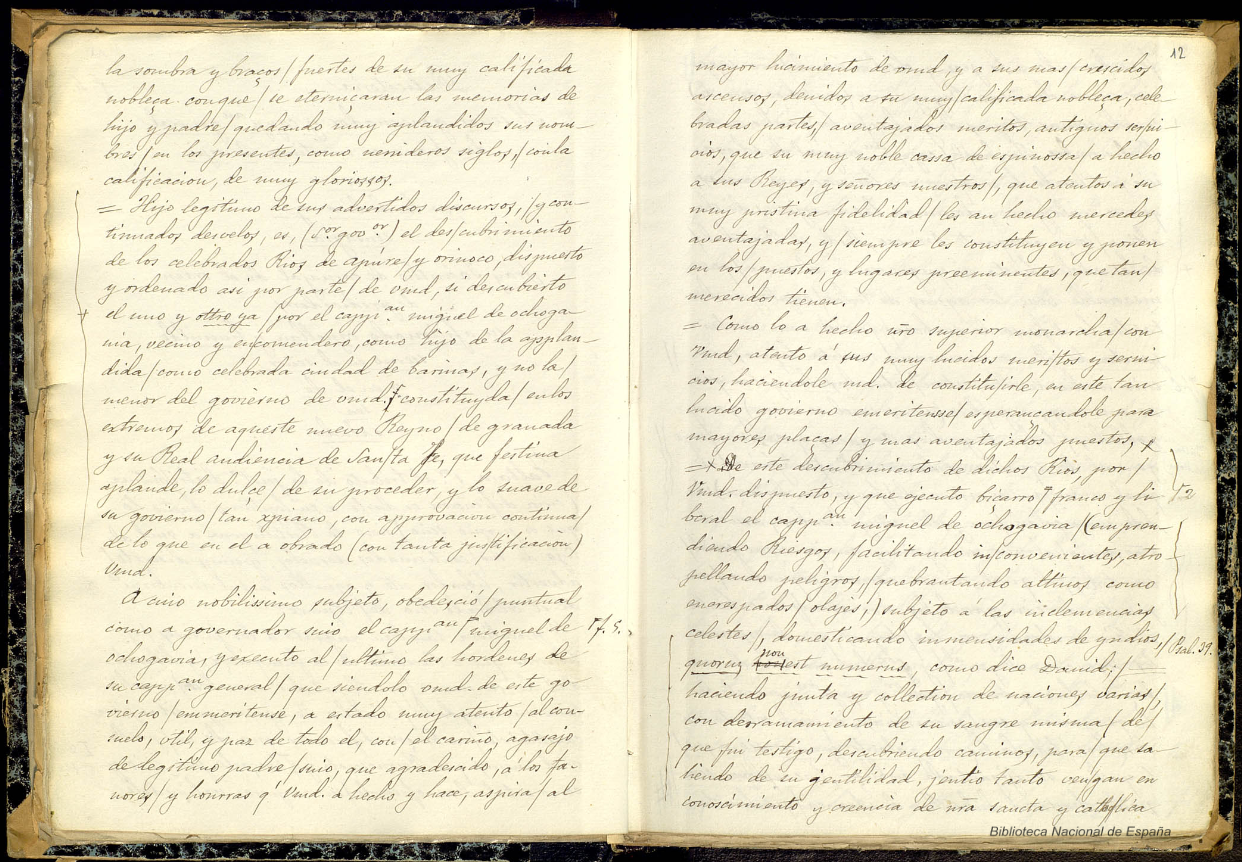 la sombra y braços / fuertes de su muy calificada
nobleça conque / se eterniçaran las memorias de
hijo y padre / quedando muy aplaudidos sus nom-
bres / en los presentes, como uenideros siglos, / con la
calificacion, de muy gloriossos.
= Hijo legitimo de sus advertidos discursos, / y con-
tinuados desvelos, es, (Sor. gov.or) el des/cubrimiento
de los celebrados Rios de apure / y orinoco, dispuesto
y ordenado asi por parte / de vmd, si descubierto
el uno y ottro ya / por el capp.an miguel de ochoga-
uia, vecino y encomendero, como hijo de la applau-
dida / como celebrada ciudad de barinas, y no la /
menor del govierno de vmd. constituyda / en los
extremos de aqueste nuevo Reyno / de granada
y su Real audiencia de San/ta fe, que festina
aplaude, lo dulce / de su proceder, y lo suave de
su govierno / tan xpiano, con approvacion continua /
de lo que en el a obrado (con tanta justificacion)
Vmd.
A cuio nobilissimo subjeto, obedesció / puntual
como a governador suio el capp.an miguel de
ochogavia, y executo al / ultimo las hordenes de
su capp.an general / que siendolo vmd. de este go-
vierno / emmeritense, a estado muy atento / al con-
suelo, vtil, y paz de todo el, con / el cariño, agasajo
de legitimo padre / suio, que agradescido, á los fa-
uores / y honrras q Vmd. a hecho y hace, aspira / al
f. 5.
12
mayor lucimiento de vmd, y a sus mas / crescidos
ascensos, deuidos a su muy / calificada nobleça, cele-
bradas partes, / aventajados meritos, antiguos serui-
cios, que su muy noble cassa de espinossa / a hecho
a sus Reyes, y señores nuestros /, que atentos á su
muy pristina fidelidad / les an hecho mercedes
aventajadas, y / siempre les constituyen y ponen
en los / puestos, y lugares preeminentes, que tan /
merecidos tienen.
= Como lo a hecho nro superior monarcha / con
Vmd, atento á sus muy lucidos meri/tos y serui-
cios, haciendole md. de constitu/irle, en este tan
lucido govierno emeritensse / esperancandole para
mayores placas / y mas aventajados puestos, x
= x De este descubrimiento de dichos Rios, por /
Vmd. dispuesto, y que ejecuto biçarro franco y li-
beral el capp.an miguel de ochogavia / (empren-
diendo Riesgos, facilitando in/convenientes, atro-
pellando peligros, / quebrantando altiuos como
encrespados / olajes;) subjeto a las inclemencias
celestes /, domesticando inmensidades de yndios,
quorum non est numerus, como dice Dauid; /
haciendo junta y collection de naciones varias /,
con derramamiento de su sangre misma / de /
que fui testigo, descubriendo caminos, para / que sa-
liendo de su gentilidad, jentio tanto vengan en
conoscimiento y creencia de nra sancta y catholica
2
/ Psal. 39.
Biblioteca Nacional de España